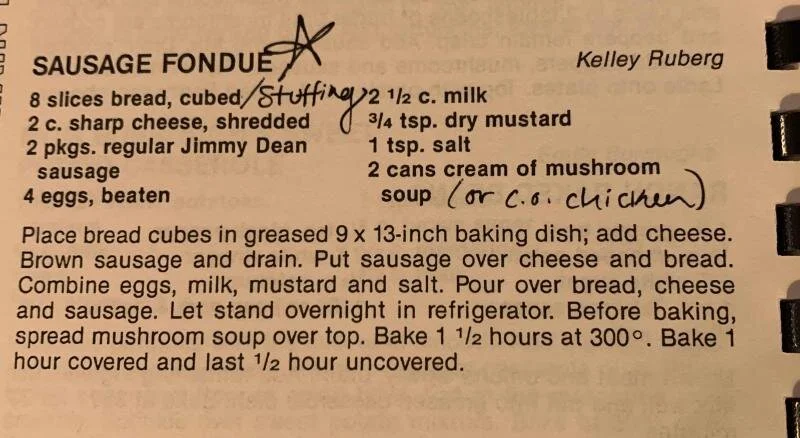 SAUSAGE FONDUE
Kelley Ruberg
8 slices bread, cubed /stuffing
2 c. sharp cheese, shredded
2 pkgs. regular Jimmy Dean
sausage
4 eggs, beaten
2 1/2 c. milk
3/4 tsp. dry mustard
1 tsp. salt
2 cans cream of mushroom
soup (or c.o. chicken)
Place bread cubes in greased 9 x 13-inch baking dish; add cheese.
Brown sausage and drain. Put sausage over cheese and bread.
Combine eggs, milk, mustard and salt. Pour over bread, cheese
and sausage. Let stand overnight in refrigerator. Before baking,
spread mushroom soup over top. Bake 1 1/2 hours at 300°. Bake 1
hour covered and last 1/2 hour uncovered.